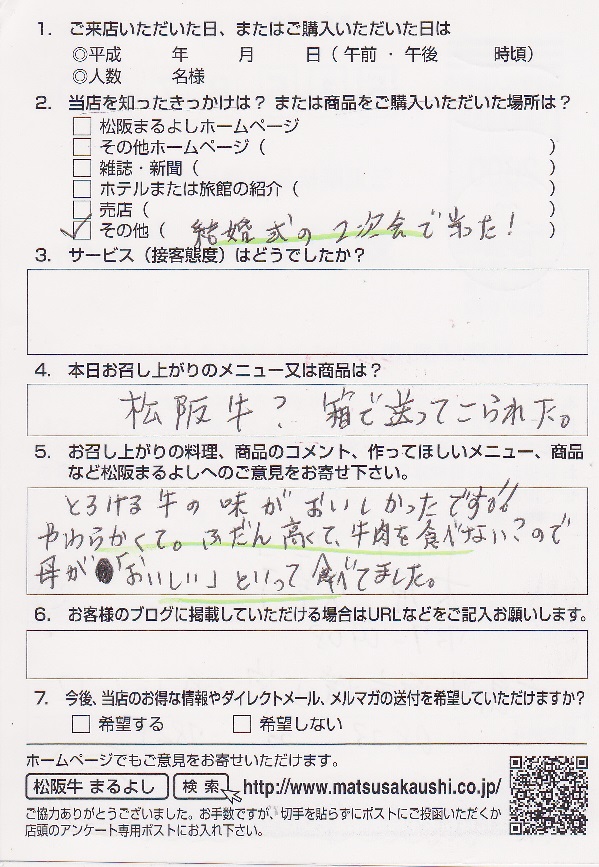 1. ご来店いただいた日、またはご購入いただいた日は
◎平成 年 月 日（ 午前 ・ 午後 時頃）
◎人数 名様
2. 当店を知ったきっかけは？ または商品をご購入いただいた場所は？
松阪まるよしホームページ
その他ホームページ（ ）
雑誌・新聞（ ）
ホテルまたは旅館の紹介（ ）
売店（ ）
その他（ 結婚式の2次会で当った！ ）
3. サービス（接客態度）はどうでしたか？
4. 本日お召し上がりのメニュー又は商品は？
松阪牛？ 箱で送ってこられた。
5. お召し上がりの料理、商品のコメント、作ってほしいメニュー、商品
など松阪まるよしへのご意見をお寄せ下さい。
とろける牛の味がおいしかったです!!
やわらかくて。ふだん高くて、牛肉を食べない？ので
母が「おいしい」といって食べてました。
6. お客様のブログに掲載していただける場合はURLなどをご記入お願いします。
7. 今後、当店のお得な情報やダイレクトメール、メルマガの送付を希望していただけますか？
希望する 希望しない
ホームページでもご意見をお寄せいただけます。
松阪牛 まるよし 検索 http://www.matsusakaushi.co.jp/
ご協力ありがとうございました。お手数ですが、切手を貼らずにポストにご投函いただくか
店頭のアンケート専用ポストにお入れ下さい。